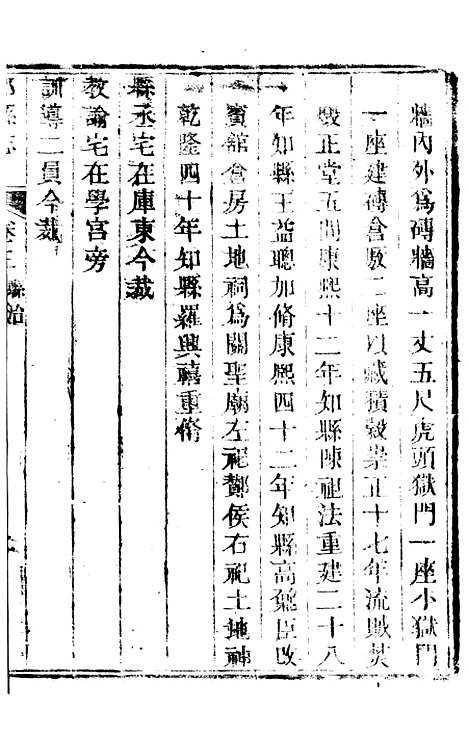 牆內外爲磚牆高一丈五尺虎頭獄門一座小獄門
一座建磚倉厫二座以藏積穀崇正十七年流賊焚
燬正堂五間康熙十二年知縣陳祀法重建二十八
年知縣王益聰加脩康熙四十二年知縣高夔臣改
賓舘倉房土地祠爲關聖廟左祀酇侯右祀土地神
乾隆四十年知縣羅興禧重脩
縣丞宅在庫東今裁
教諭宅在學宫旁
訓導一員今裁
縣志 卷二 縣治